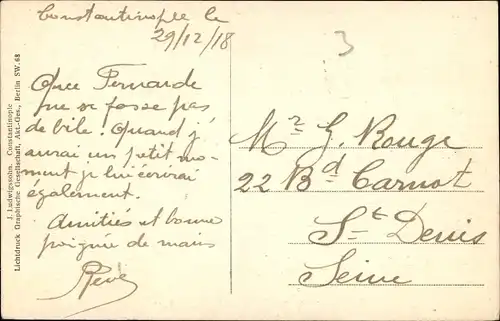 Constantinople le
29/12/18
3
Que Fernande
ne se fasse pas
de bile. Quand j'
aurai un petit mo-
ment je lui écrirai
également.
Amitiés et bonne
poignée de mains
René
Mr G. Rouge
22 Bd Carnot
St Denis
Seine
J. Ludwigssohn, Constantinople
Lichtdruck Graphische Gesellschaft, Akt.-Ges., Berlin SW. 68